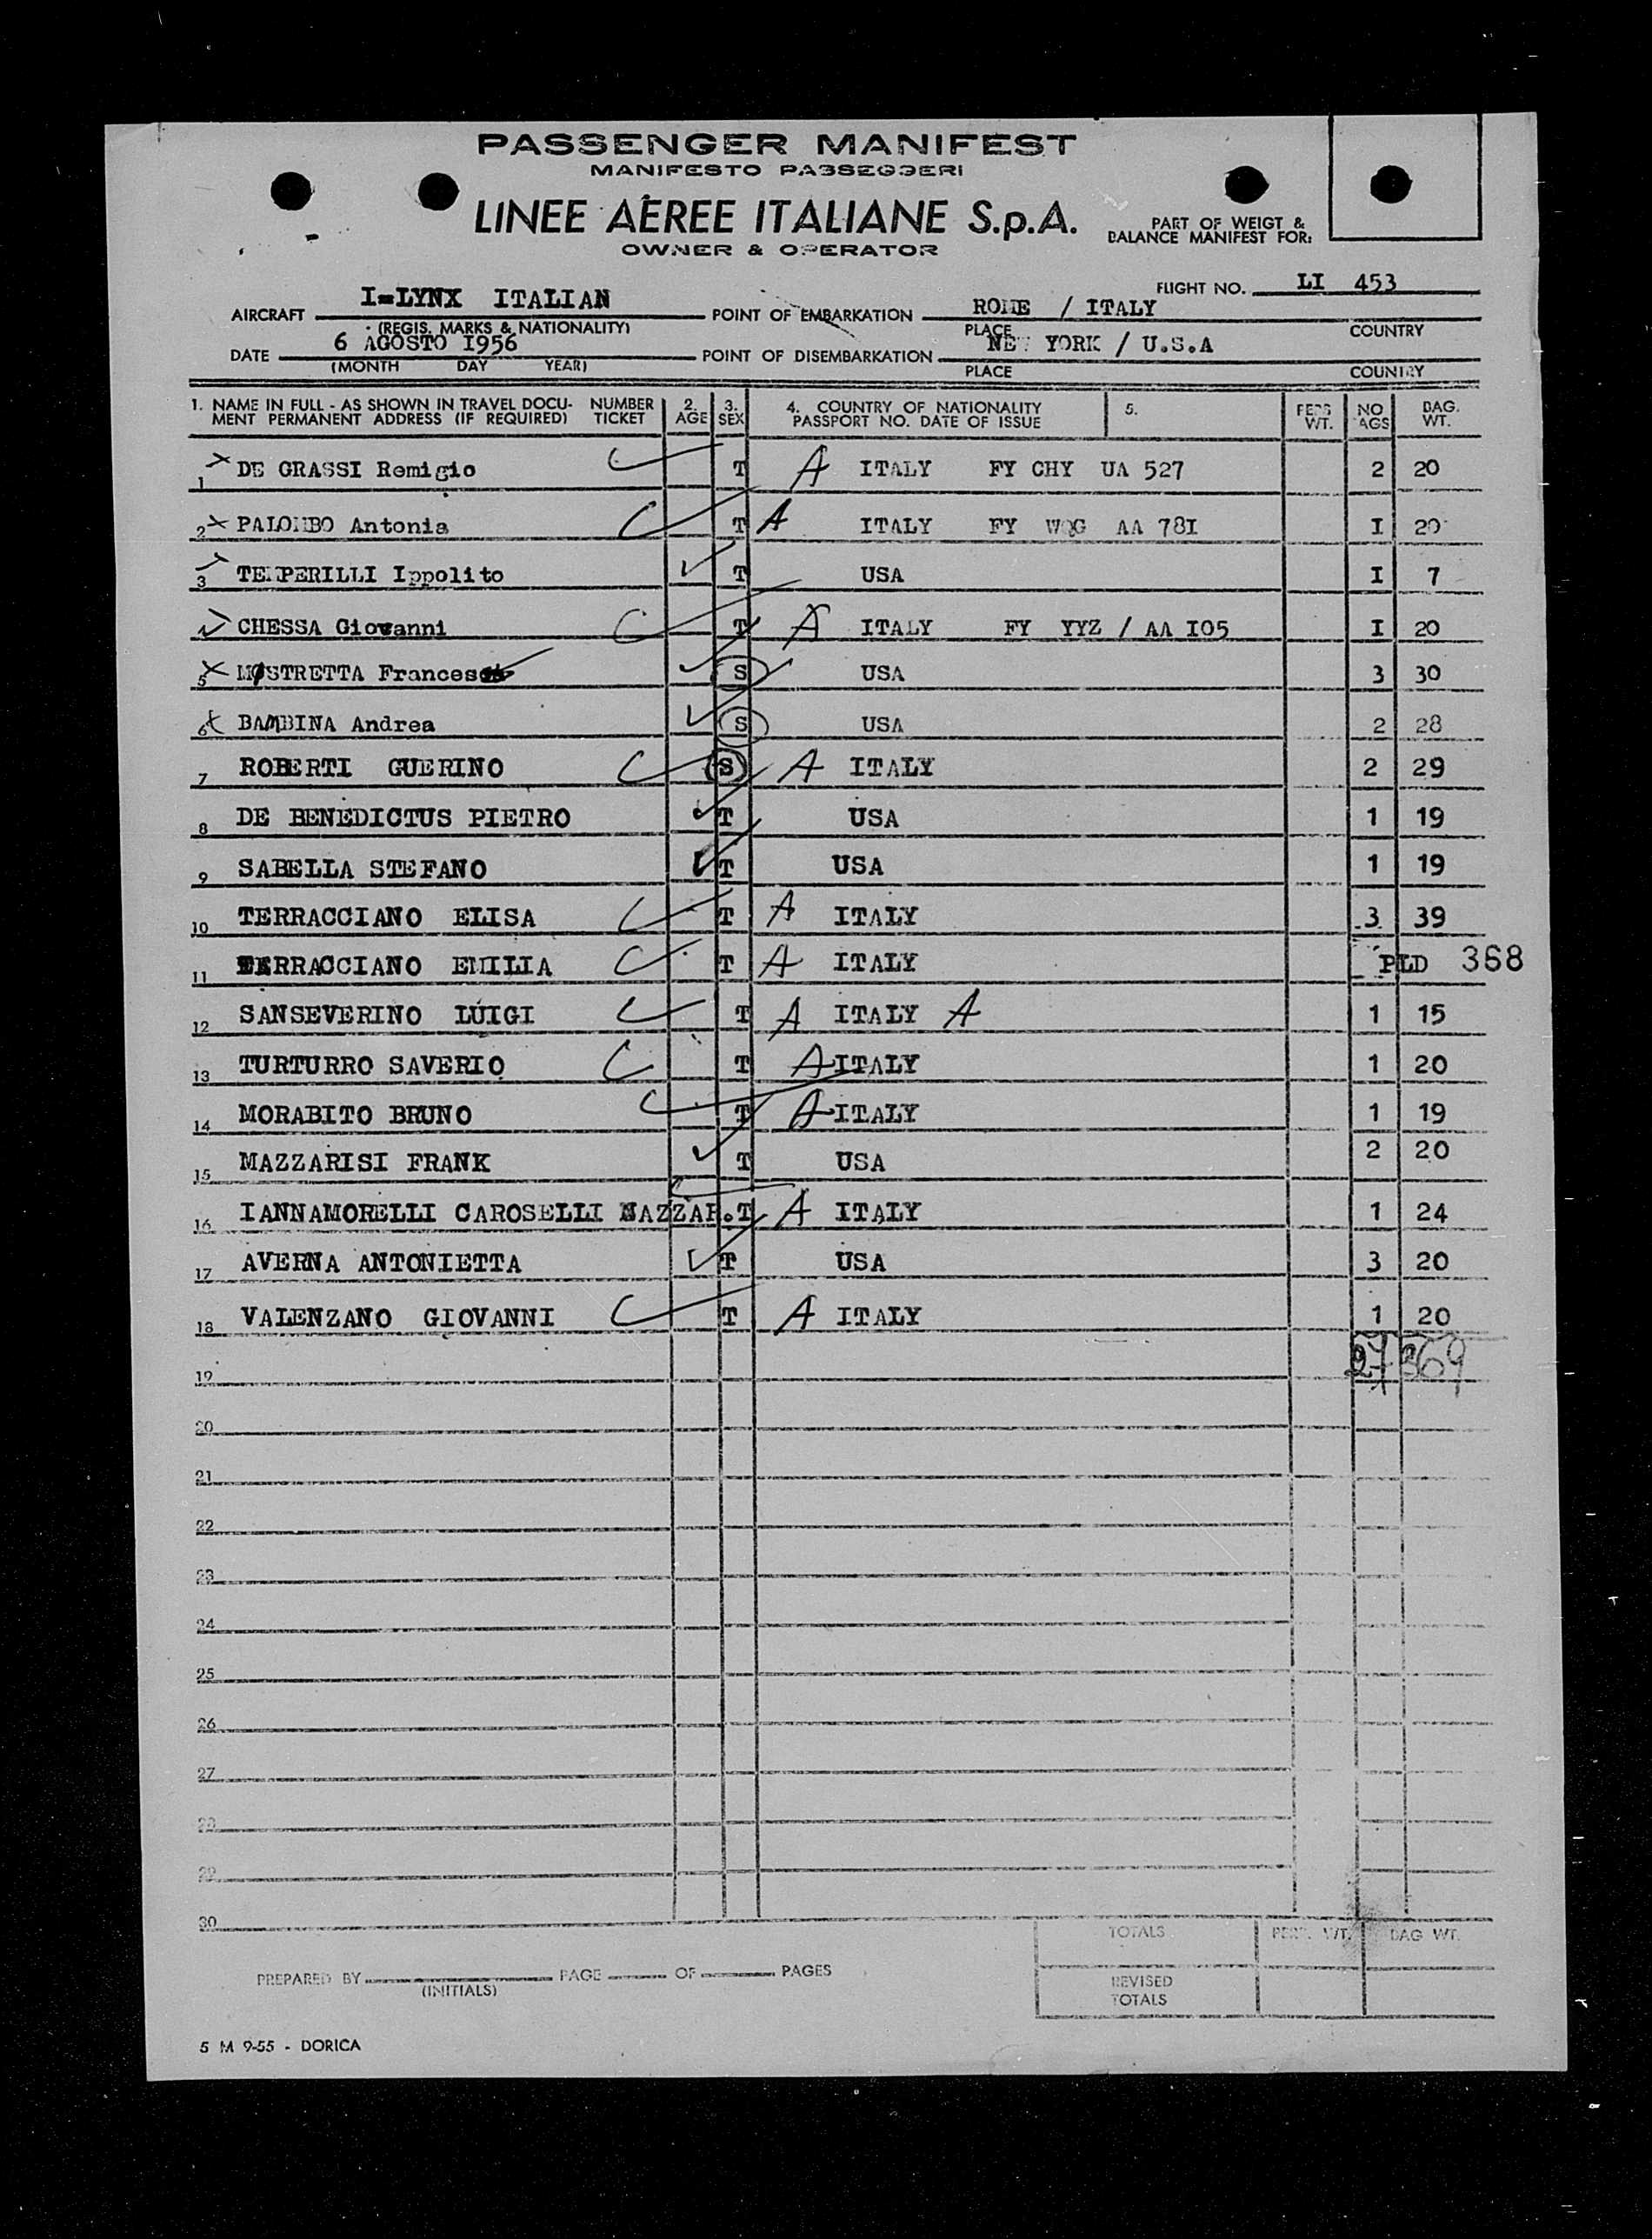 PASSENGER MANIFEST
MANIFESTO PASSEGGERI
LINEE AEREE ITALIANE S.p.A.
OWNER & OPERATOR
PART OF WEIGT &
BALANCE MANIFEST FOR:
FLIGHT NO. LI 453
AIRCRAFT I=LYNX ITALIAN POINT OF EMBARKATION ROME / ITALY
(REGIS. MARKS & NATIONALITY) PLACE COUNTRY
DATE 6 AGOSTO I956 POINT OF DISEMBARKATION NEW YORK / U.S.A
(MONTH DAY YEAR) PLACE COUNTRY
1. NAME IN FULL - AS SHOWN IN TRAVEL DOCU- NUMBER 2. 3. 4. COUNTRY OF NATIONALITY 5. PERS NO BAG.
MENT PERMANENT ADDRESS (IF REQUIRED) TICKET AGE SEX PASSPORT NO. DATE OF ISSUE WT. AGS WT.
1 DE GRASSI Remigio T A ITALY FY CHY UA 527 2 20
2 PALOMBO Antonia T A ITALY FY WQG AA 78I I 20
3 TEMPERILLI Ippolito T USA I 7
CHESSA Giovanni T A ITALY FY YYZ / AA I05 I 20
5 MOSTRETTA S USA 3 30
6 BAMBINA Andrea S USA 2 28
7 ROBERTI GUERINO S A ITALY 2 29
8 DE BENEDICTUS PIETRO T USA 1 19
9 SABELLA STEFANO T USA 1 19
10 TERRACCIANO ELISA T A ITALY 3 39
11 TERRACCIANO EMILIA T A ITALY PLD 368
12 SANSEVERINO LUIGI T A ITALY A 1 15
13 TURTURRO SAVERIO T A ITALY 1 20
14 MORABITO BRUNO T A ITALY 1 19
15 MAZZARISI FRANK T USA 2 20
16 IANNAMORELLI CAROSELLI NAZZAR.T A ITALY 1 24
17 AVERNA ANTONIETTA T USA 3 20
18 VALENZANO GIOVANNI T A ITALY 1 20
19 27 369
20
21
22
23
24
25
26
27
28
29
30
TOTALS PERS. WT. BAG WT.
PREPARED BY PAGE OF PAGES
(INITIALS)
REVISED
TOTALS
5 M 9-55 - DORICA